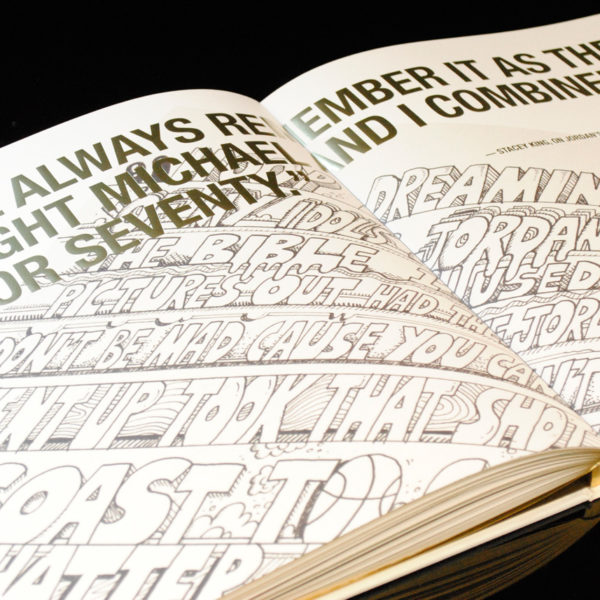 L ALWAYS REMEMBER IT AS THE
GHT MICHAEL AND I COMBINE
OR SEVENTY.”
— STACEY KING, ON JORDAN'S
IDOLS
HE BIBLE
PICTURES OUT HAD TH
DON'T BE MAD CAUSE YOU CAN
ENT UP TOOK THAT SHO
COAST TO
HATTER
DREAMIN
JORDAN
USED
JORD